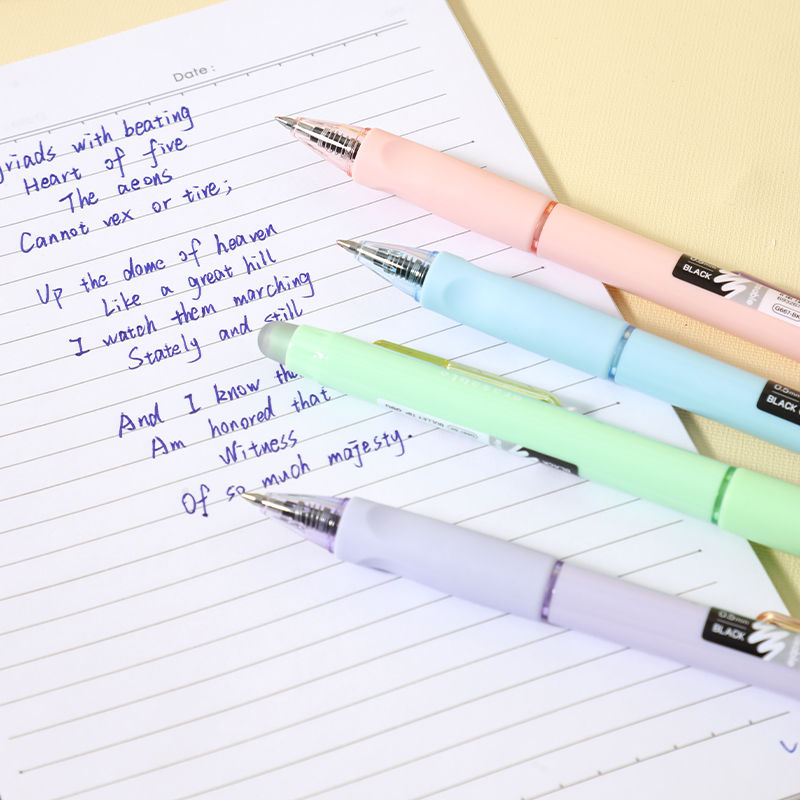 Date:
yriads with beating
Heart of five
The aeons
Cannot vex or tire;
Up the dome of heaven
Like a great hill
I watch them marching
Stately and still
And I know
Am honored that
Witness
Of so much majesty.
BLACK
0.5mm
BLACK
BLACK
0.5mm
BLACK